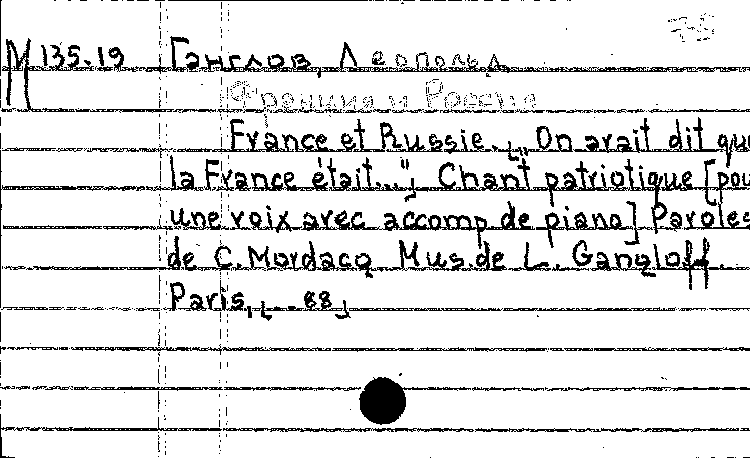 75
М 135.19 Ганглов, Леопольд
Франция и Россия
France et Russie. [„On avait dit que
la France était..."] Chant patriotique [pou
une voix avec accomp de piano] Paroles
de C. Mordacq Mus. de L. Gangloff.
Paris, [...88]